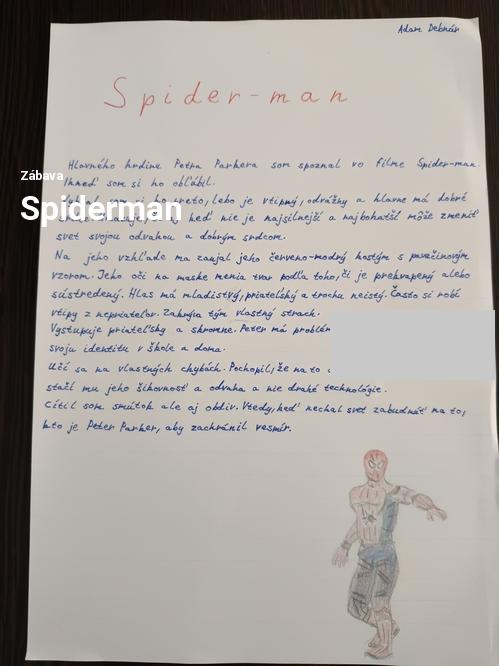 Adam Debnár
Spider-man
Hlavného hrdinu Petra Parkera som spoznal vo filme Spider-man.
Zábava
Ihneď som si ho obľúbil.
ho preto, lebo je vtipný, odvážny a hlavne má dobré
Spiderman
keď nie je najsilnejší a najbohatší môže zmeniť
svet svojou odvahou a dobrým srdcom.
Na jeho vzhľade ma zaujal jeho červeno-modrý kostým s pavučinovým
vzorom. Jeho oči na maske menia tvar podľa toho, či je prekvapený alebo
sústredený. Hlas má mladistvý, priateľský a trochu neistý. Často si robí
vtipy z nepriateľov. Zakrýva tým vlastný strach.
Vystupuje priateľsky a skromne. Peter má problém
svoju identitu v škole a doma.
Učí sa na vlastných chybách. Pochopil, že na to
stačí mu jeho šikovnosť a odvaha a nie drahé technológie.
Cítil som smútok ale aj obdiv. Vtedy, keď nechal svet zabudnúť na to,
kto je Peter Parker, aby zachránil vesmír.